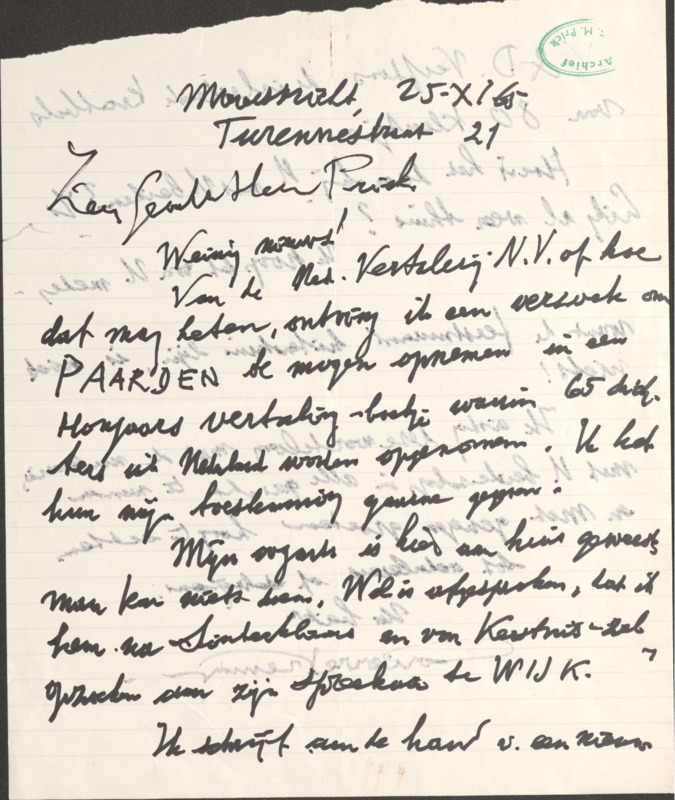 Archief
H.M. Prick
Maastricht, 25-XI 65
Turennestraat 21
Zeer Geachte Heer Prick.
Weinig nieuws!
Van de Ned. Vertalerij N.V. of hoe
dat mag heten, ontving ik een verzoek om
PAARDEN te mogen opnemen in een
Hongaars vertaling-boekje waarin 65 dich-
ters uit Nederland worden opgenomen. Ik heb
hun mijn toestemming gaarne gegeven.
Mijn oogarts is hier aan huis geweest,
maar kon niets doen. Wel is afgesproken, dat ik
hem na Sinterklaas en van Kerstmis zal
opzoeken aan zijn spreekuur te WIJK.
Ik schrijf aan de hand v. een nieuw